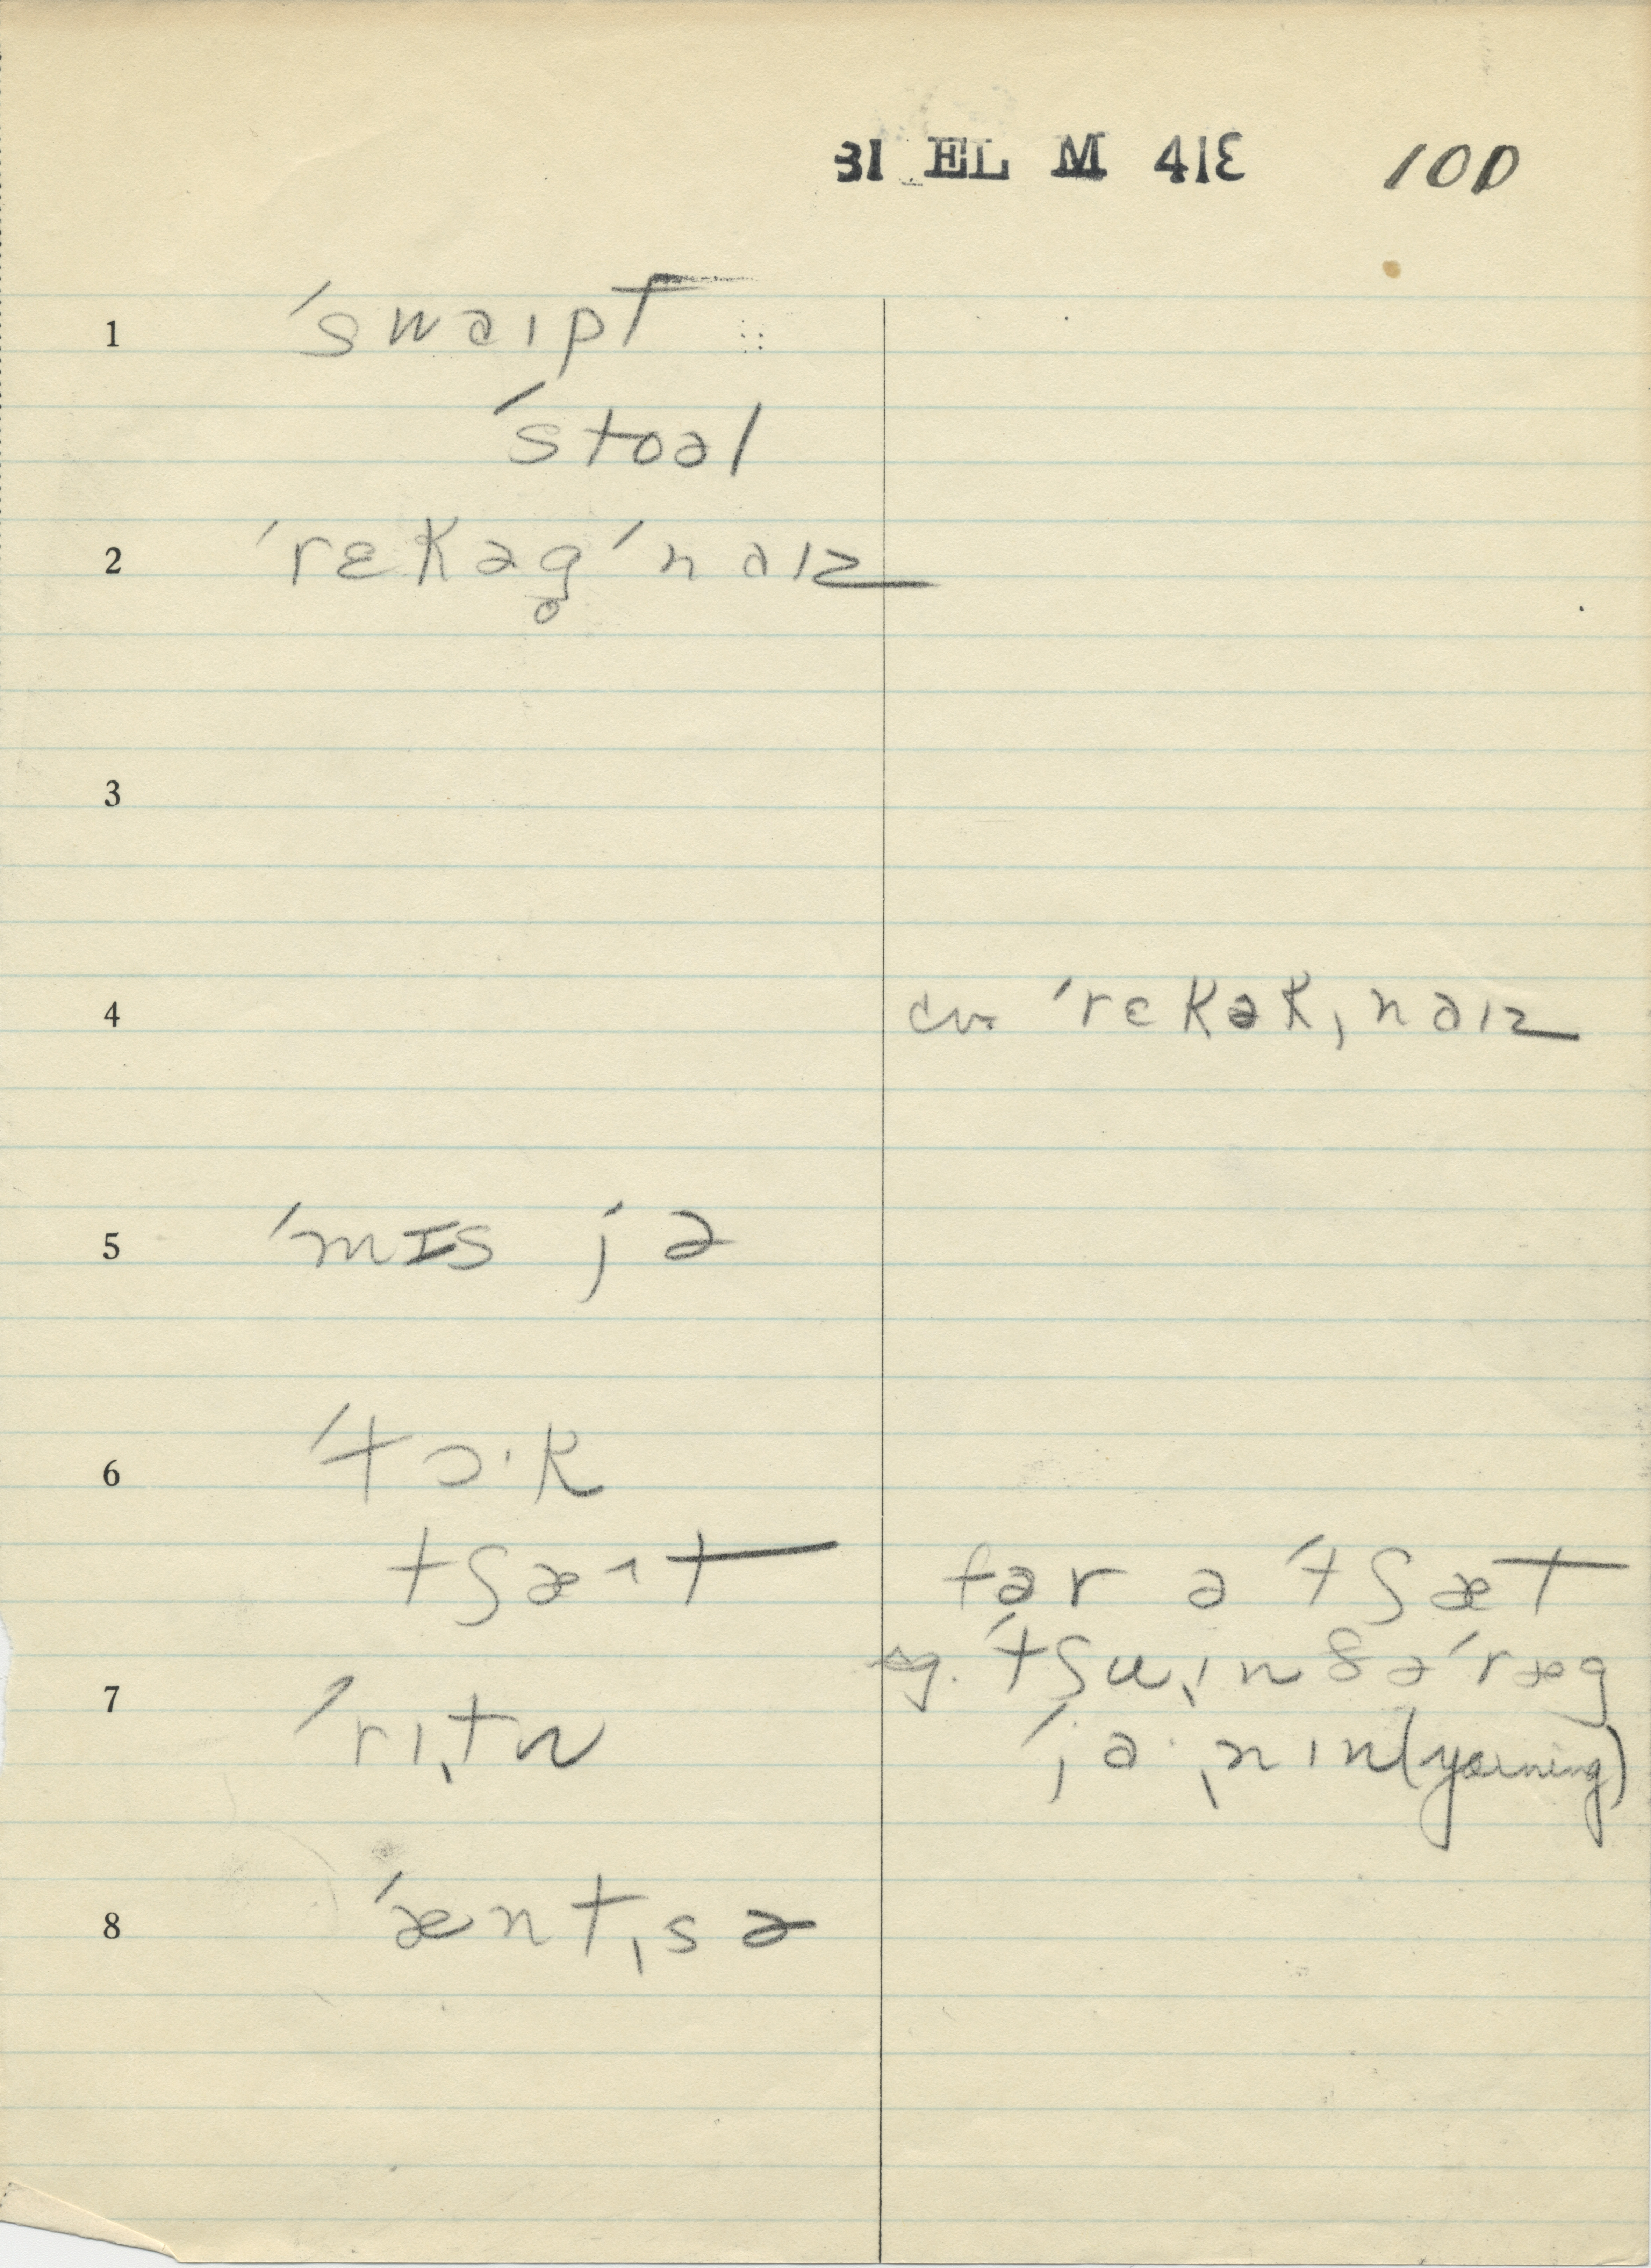 31 EL M 41E 100
1 ˈswaɪpt
ˈstoəl
2 ˈrɛkəg̥ˈnaɪz
3
4 cv. ˈrɛkəkˌnaɪz
5 ˈmɪs jə
6 ˈtɔ·k
tʃæ˄t fər ə ˈtʃæt
eg. ˈtʃuˌɪn ðə ˈræg
7 ˈrɪˌtn ˈja·ˌnɪn (yawning)
8 ˈæntˌsə